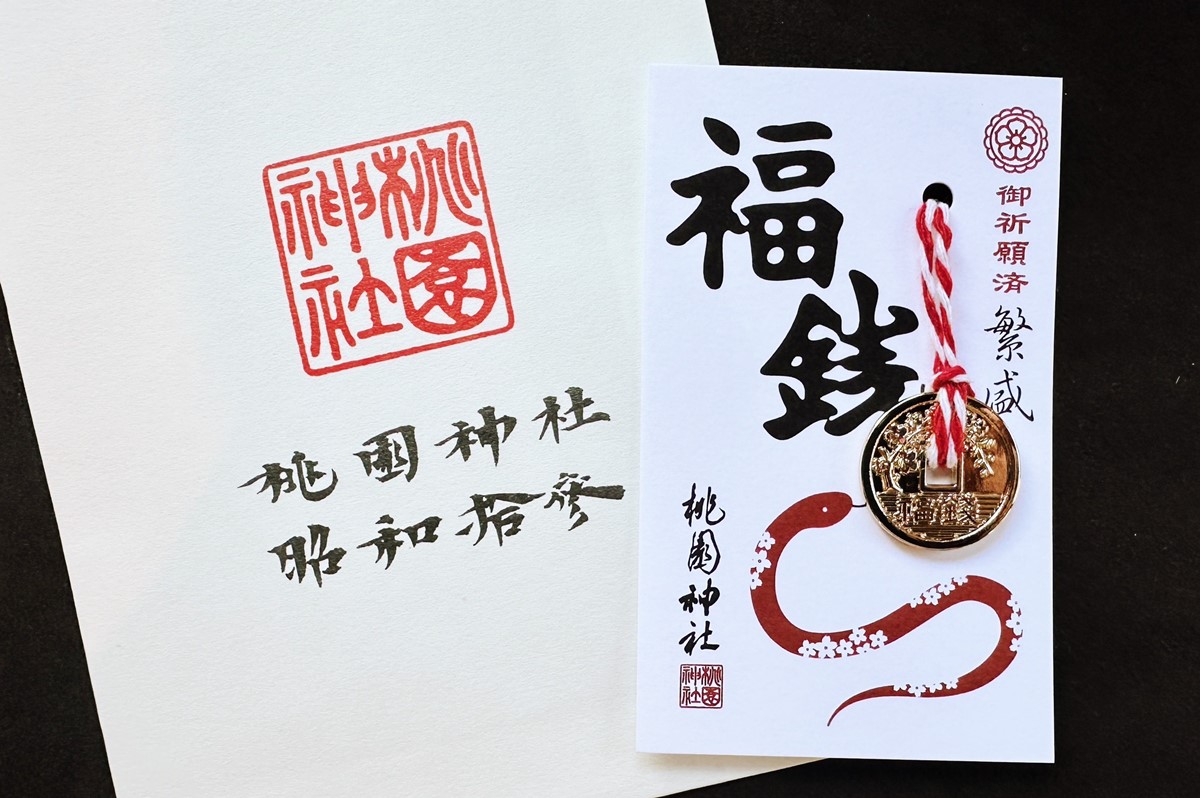 桃園
神社
桃園神社
昭和拾參
福銭
御祈願済
繁盛
福銭
桃園神社
桃園
神社